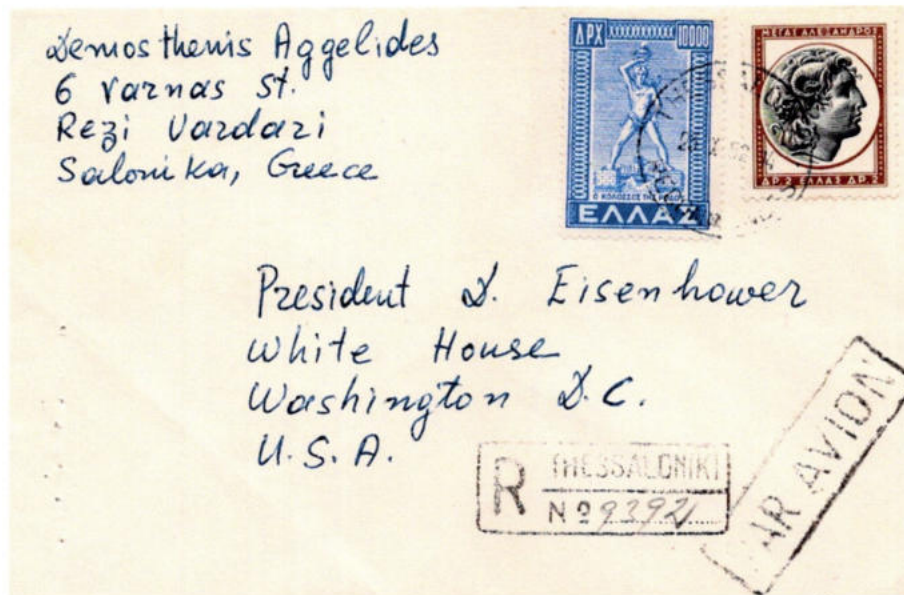 Demosthenis Aggelides
6 Varnas St.
Rezi Vardari
Salonika, Greece
ΔΡΧ 10000
Ο ΚΟΛΟΣΣΟΣ ΤΗΣ ΡΟΔΟΥ
ΕΛΛΑΣ
ΜΕΓΑΣ ΑΛΕΞΑΝΔΡΟΣ
ΔΡ. 2 ΕΛΛΑΣ ΔΡ. 2
President D. Eisenhower
White House
Washington D.C.
U.S.A.
R THESSALONIKI
Nº 9392
PAR AVION